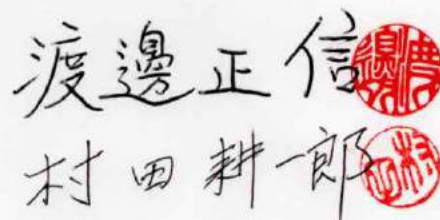 渡邊正信
村田耕一郎